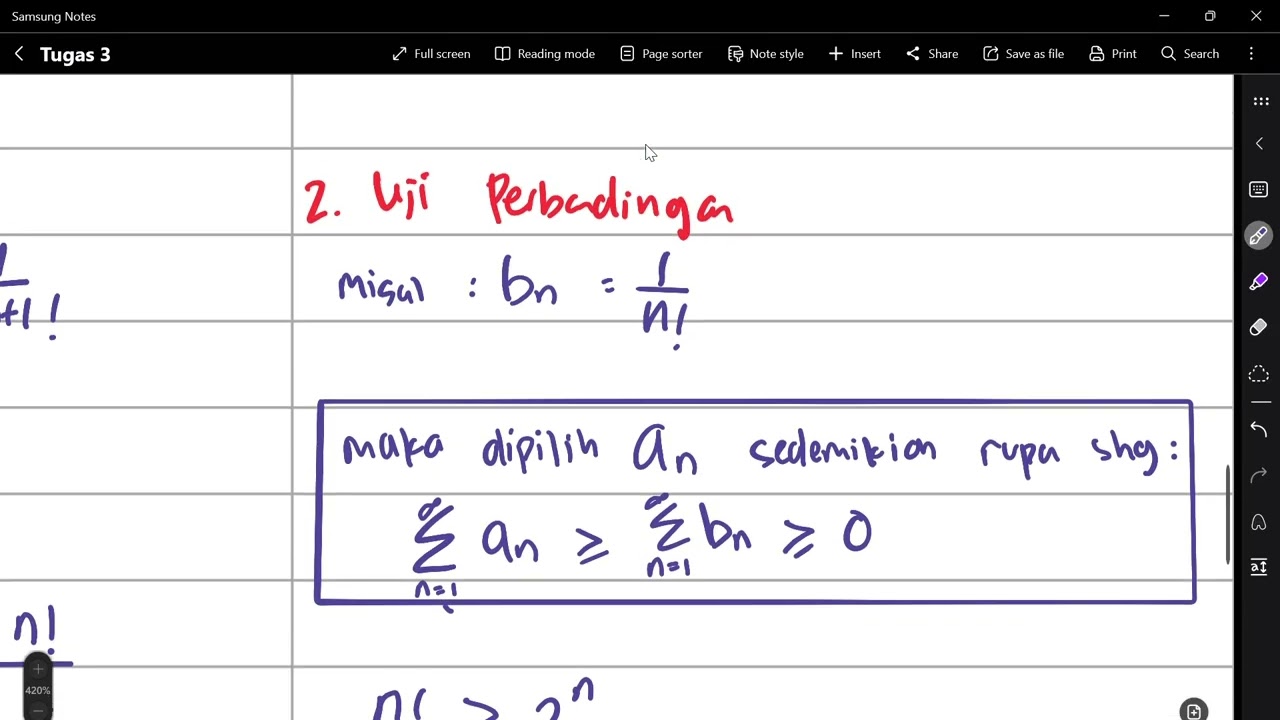 Samsung Notes
Tugas 3
Full screen Reading mode Page sorter Note style Insert Share Save as file Print Search
2. Uji Perbadingan
misal : bn = 1/n!
+1!
maka dipilih an sedemikian rupa shg:
∞∑n=1 an ≥ ∞∑n=1 bn ≥ 0
n!
420%
n! > 2^n